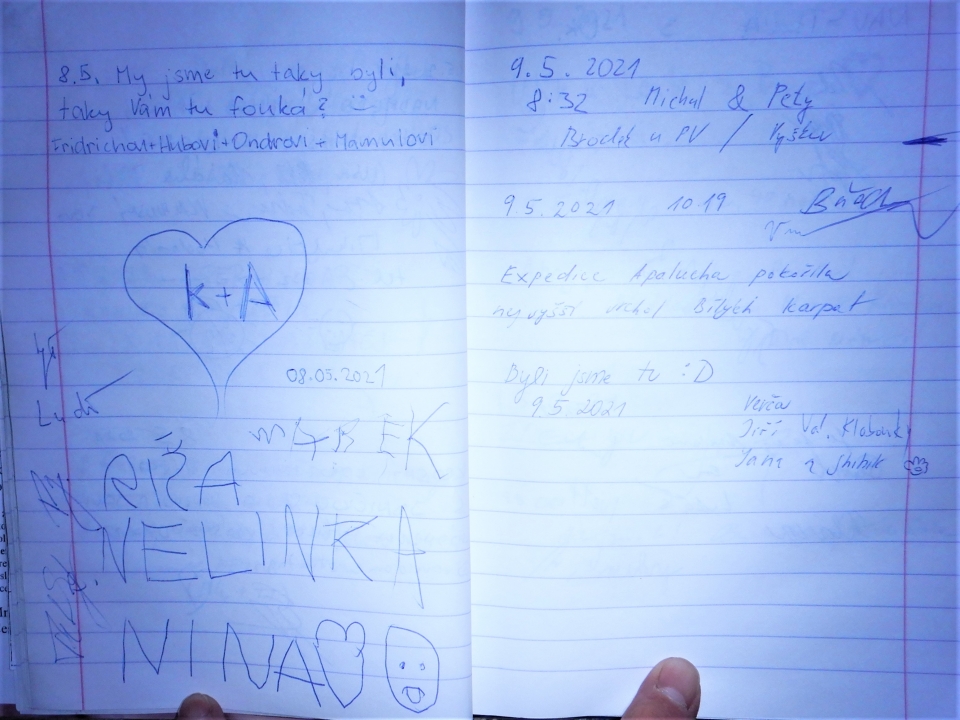 8.5. My jsme tu taky byli,
taky Vám tu fouká?
Fridrichovi+Hubovi+Ondrovi+Mamulovi
K+A
08.05.2021
Lydi
MAREK
RIŠA
NELINKA
NINA
9.5.2021
8:32 Michal & Pety
Brodek u PV / Vyškov
9 5. 2021 10:19
Expedice Apalucha pokořila
nejvyšší vrchol Bílých Karpat
Byli jsme tu :D
9.5.2021
Verča
Jiří Val. Klobouky
Jana